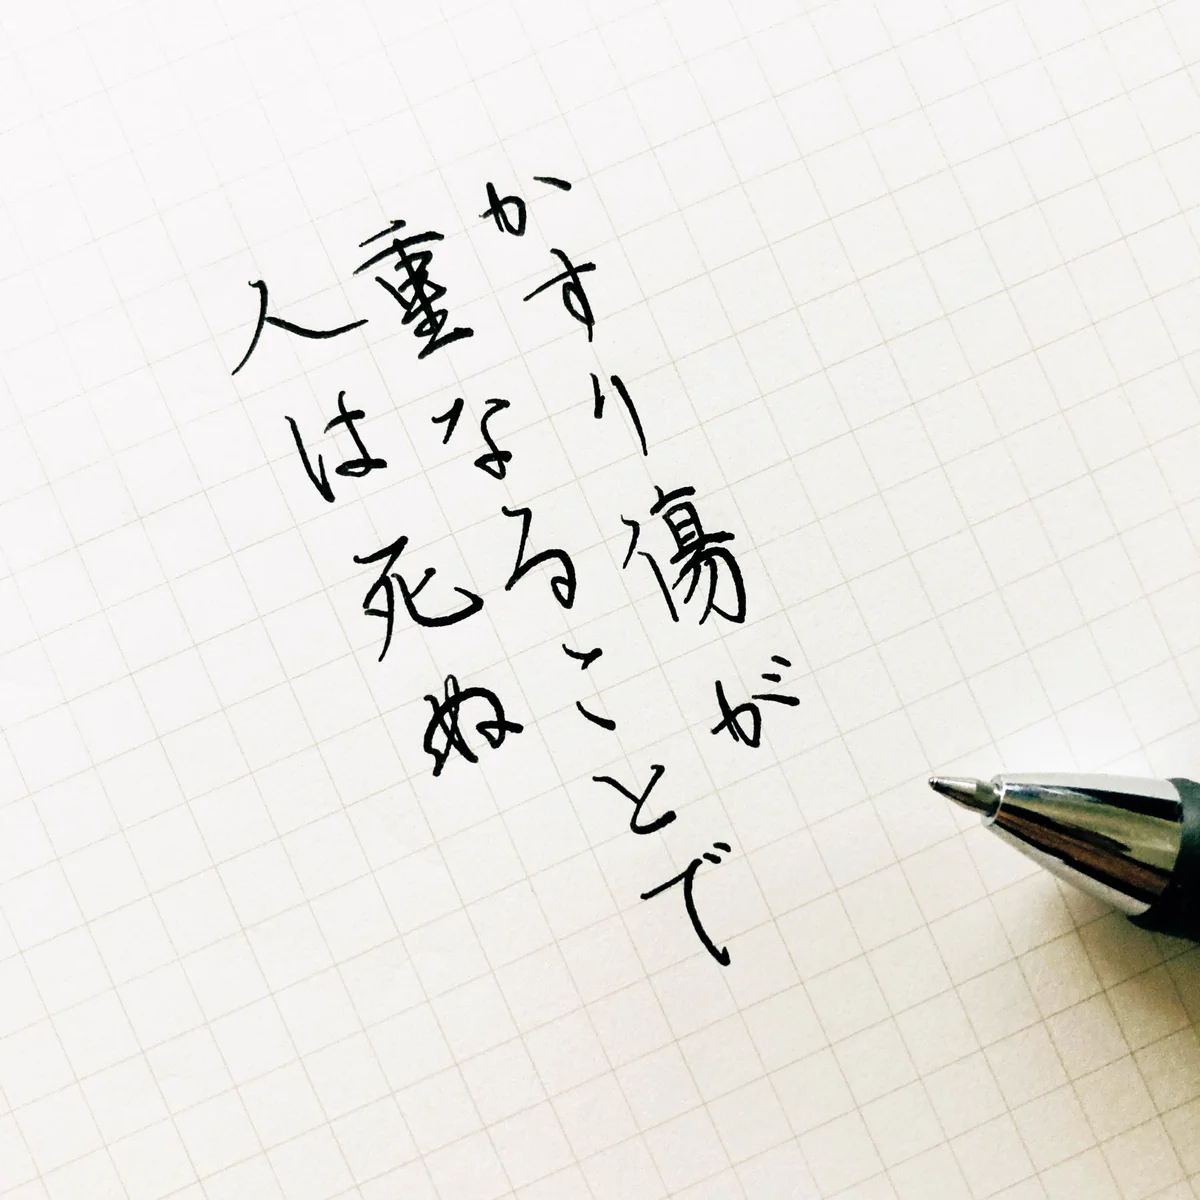 かすり傷が
重なることで
人は死ぬ